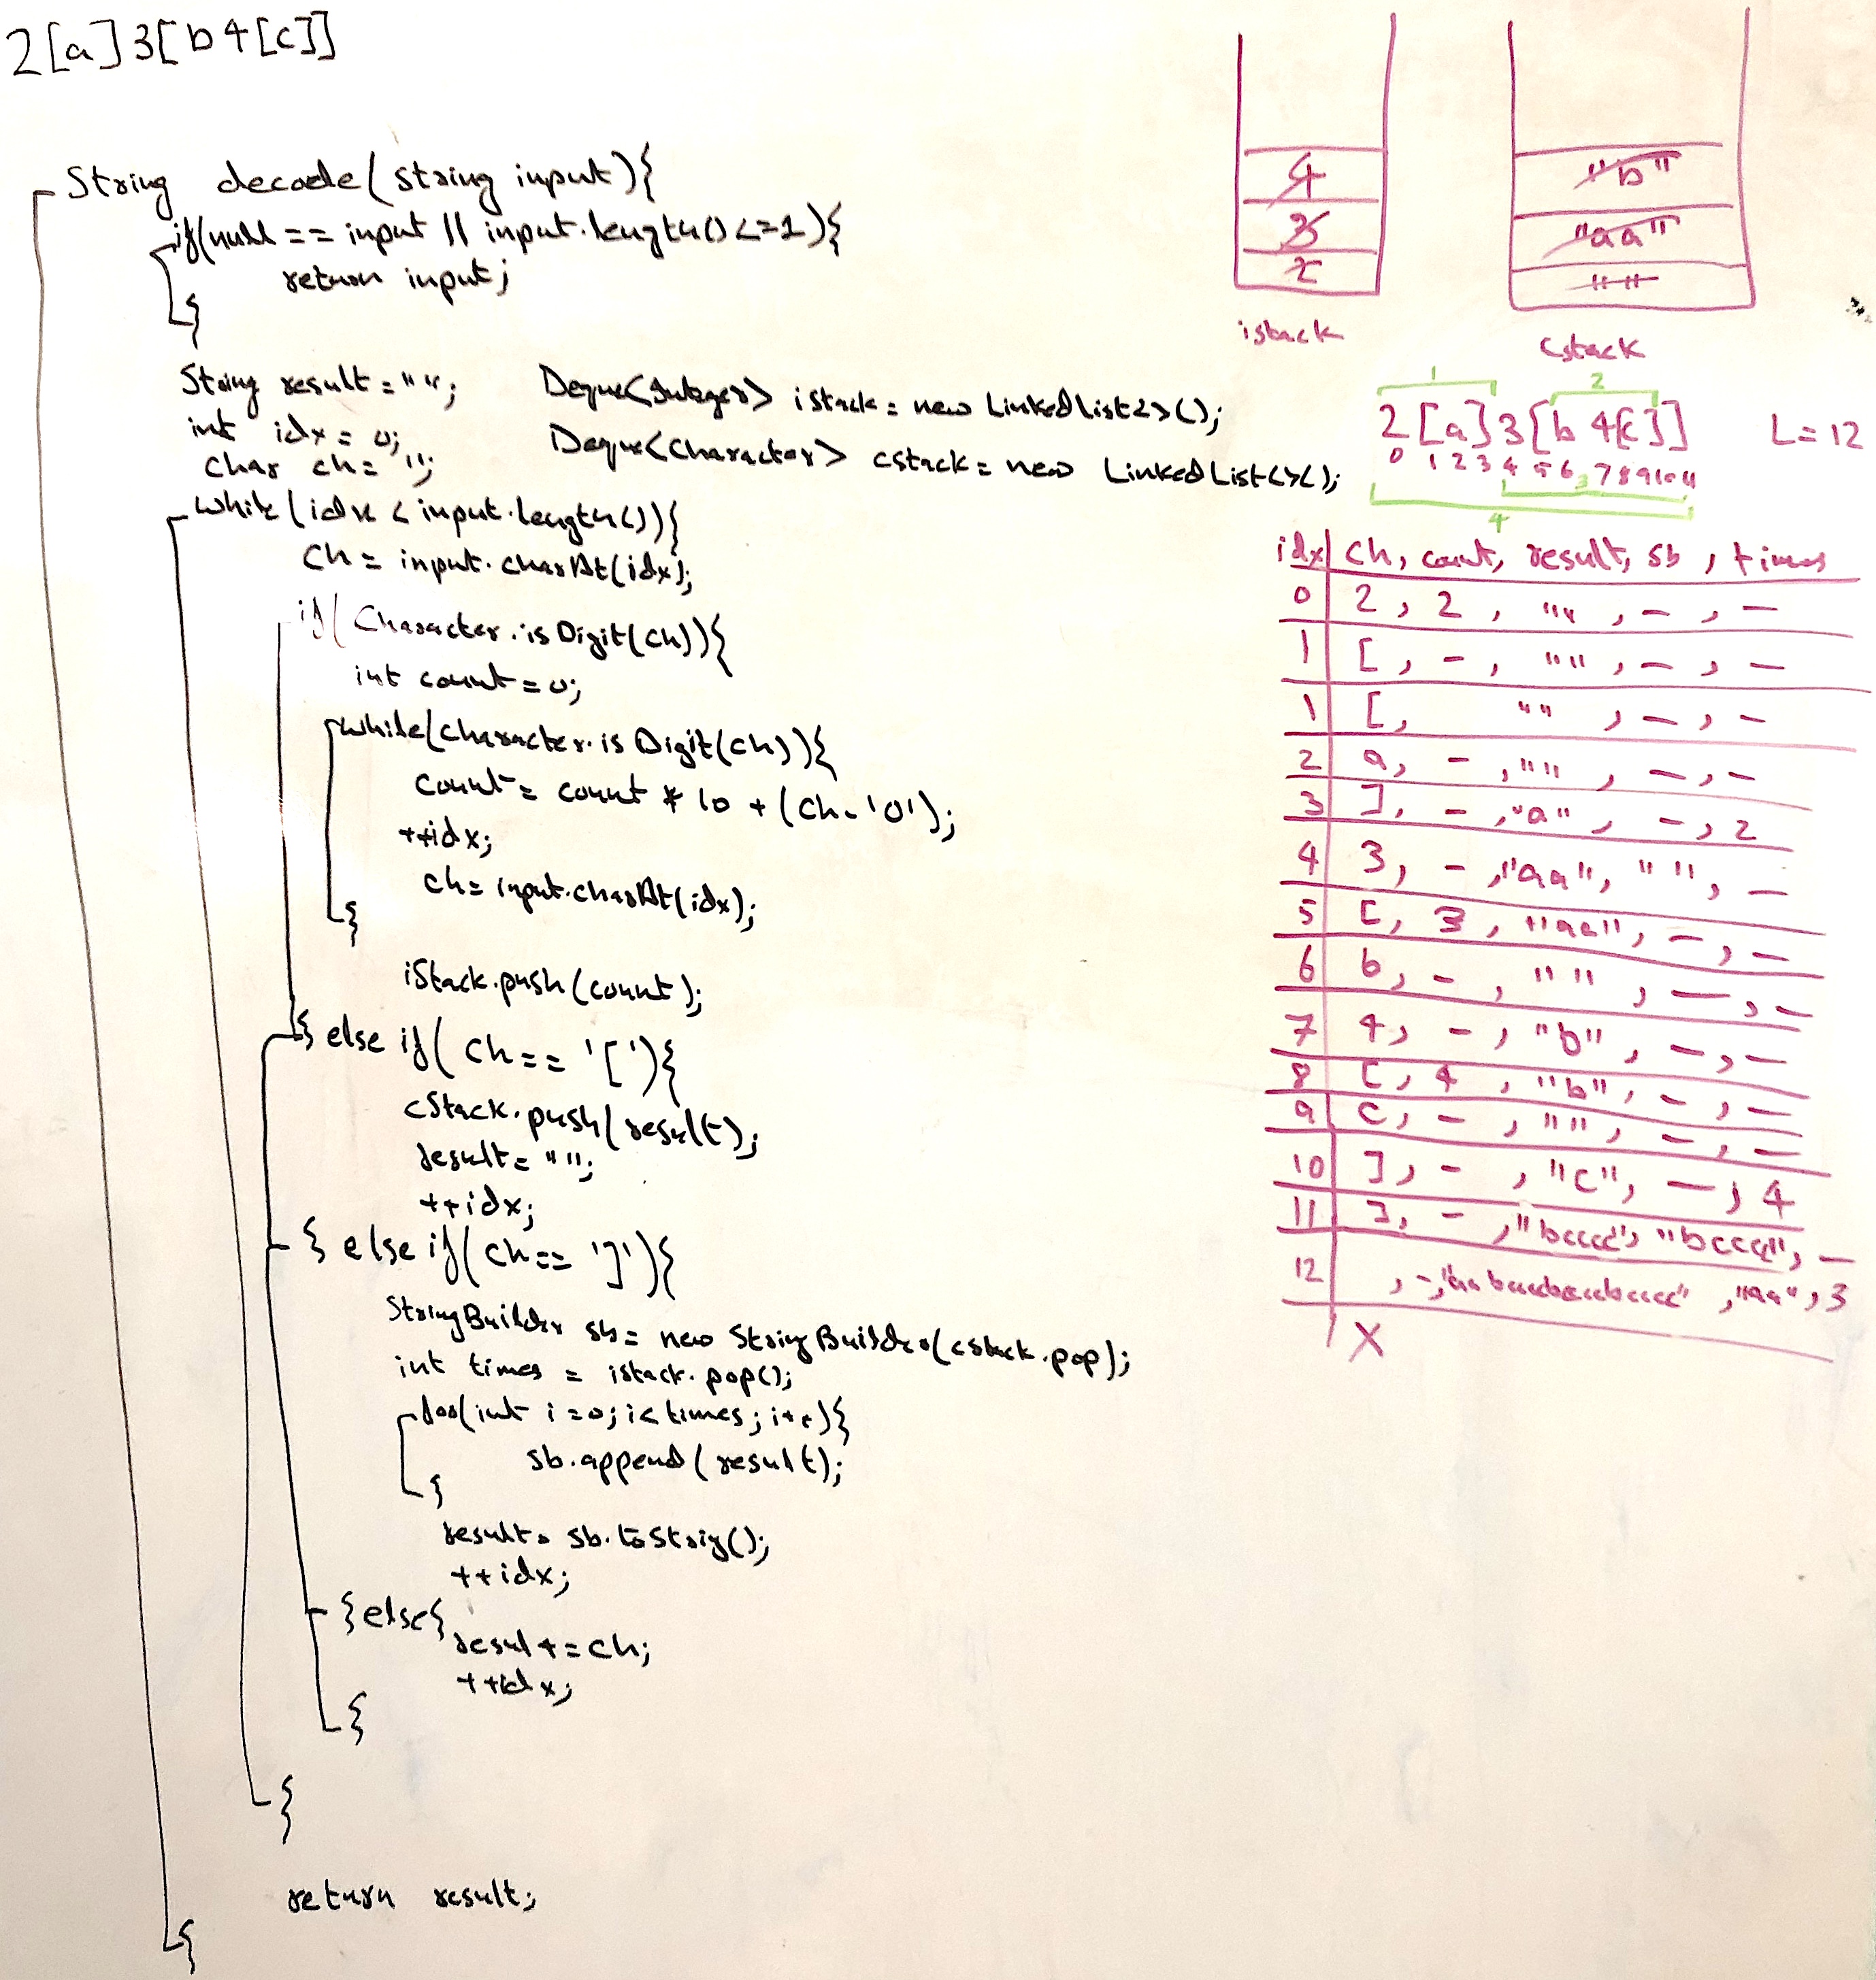 2[a]3[b4[c]]
String decode(string input){
if(null == input || input.length() <=1){
return input;
}
String result = "";
int idx = 0;
char ch = '';
Deque<Integer> istack = new LinkedList<>();
Deque<Character> cstack = new LinkedList<>();
while(idx < input.length()){
ch = input.charAt(idx);
if(Character.isDigit(ch)){
int count = 0;
while(character.isDigit(ch)){
count = count * 10 + (ch-'0');
++idx;
ch = input.charAt(idx);
}
iStack.push(count);
} else if( ch == '['){
cStack.push(result);
result = "";
++idx;
} else if( ch == ']'){
StringBuilder sb = new StringBuilder(cstack.pop);
int times = istack.pop();
for(int i=0; i< times; i++){
sb.append(result);
}
result = sb.toStrig();
++idx;
}else{
resul += ch;
++idx;
}
}
return result;
}
4
3
2
istack
"b"
"aa"
""
cstack
1 2
2[a]3[b 4[c]] L=12
0 1 2 3 4 5 6 7 8 9 10 11
3
4
idx ch, count, result, sb, times
0 2, 2, "", -, -
1 [, -, "", -, -
1 [, "", -, -
2 a, -, "", -, -
3 ], -, "a", -, 2
4 3, -, "aa", "", -
5 [, 3, "aa", -, -
6 b, -, "", -, -
7 4, -, "b", -, -
8 [, 4, "b", -, -
9 c, -, "", -, -
10 ], -, "c", -, 4
11 ], -, "bcccc", "bcccc", -
12 , -, "aabccccbccccbcccc", "aa", 3
X